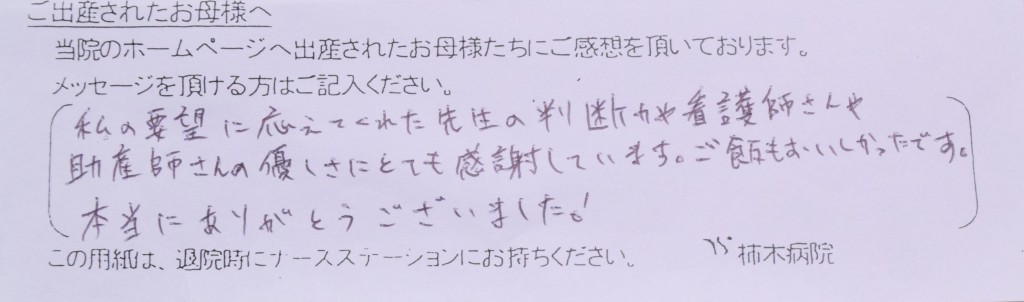 ご出産されたお母様へ
当院のホームページへ出産されたお母様たちにご感想を頂いております。
メッセージを頂ける方はご記入ください。
私の要望に応えてくれた先生の判断力や看護師さんや
助産師さんの優しさにとても感謝しています。ご飯もおいしかったです。
本当にありがとうございました!
この用紙は、退院時にナースステーションにお持ちください。 柿木病院